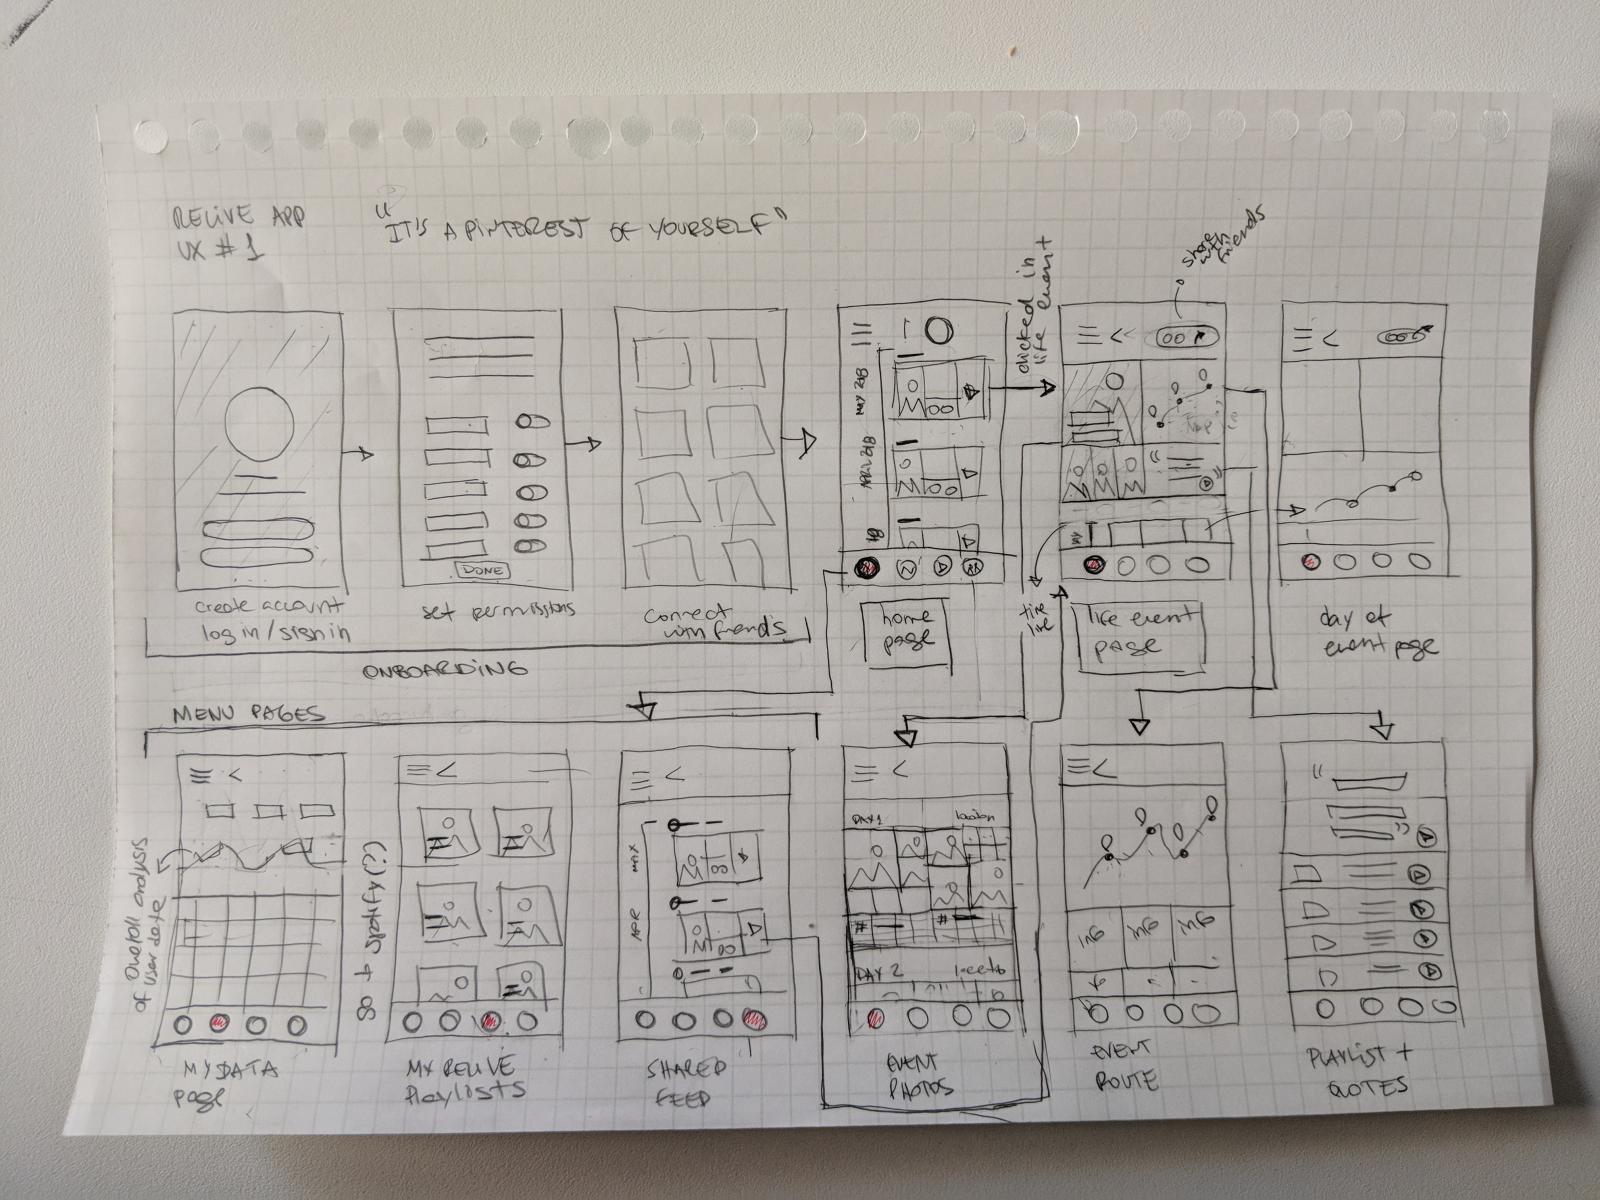 RELIVE APP
UX #1
"IT'S A PINTEREST OF YOURSELF"
clicked in
life event
share
with
friends
MAY 2018
APRIL 2018
DONE
create account
log in/sign in
set permissions
connect
with friends
ONBOARDING
home
page
time
line
life event
page
day of
event page
MENU PAGES
overall analysis
of user data
DAY 1
location
#
#
DAY 2
APR
img
img
img
MY DATA
page
MY RELIVE
Playlists
SHARED
FEED
EVENT
PHOTOS
EVENT
ROUTE
PLAYLIST +
QUOTES